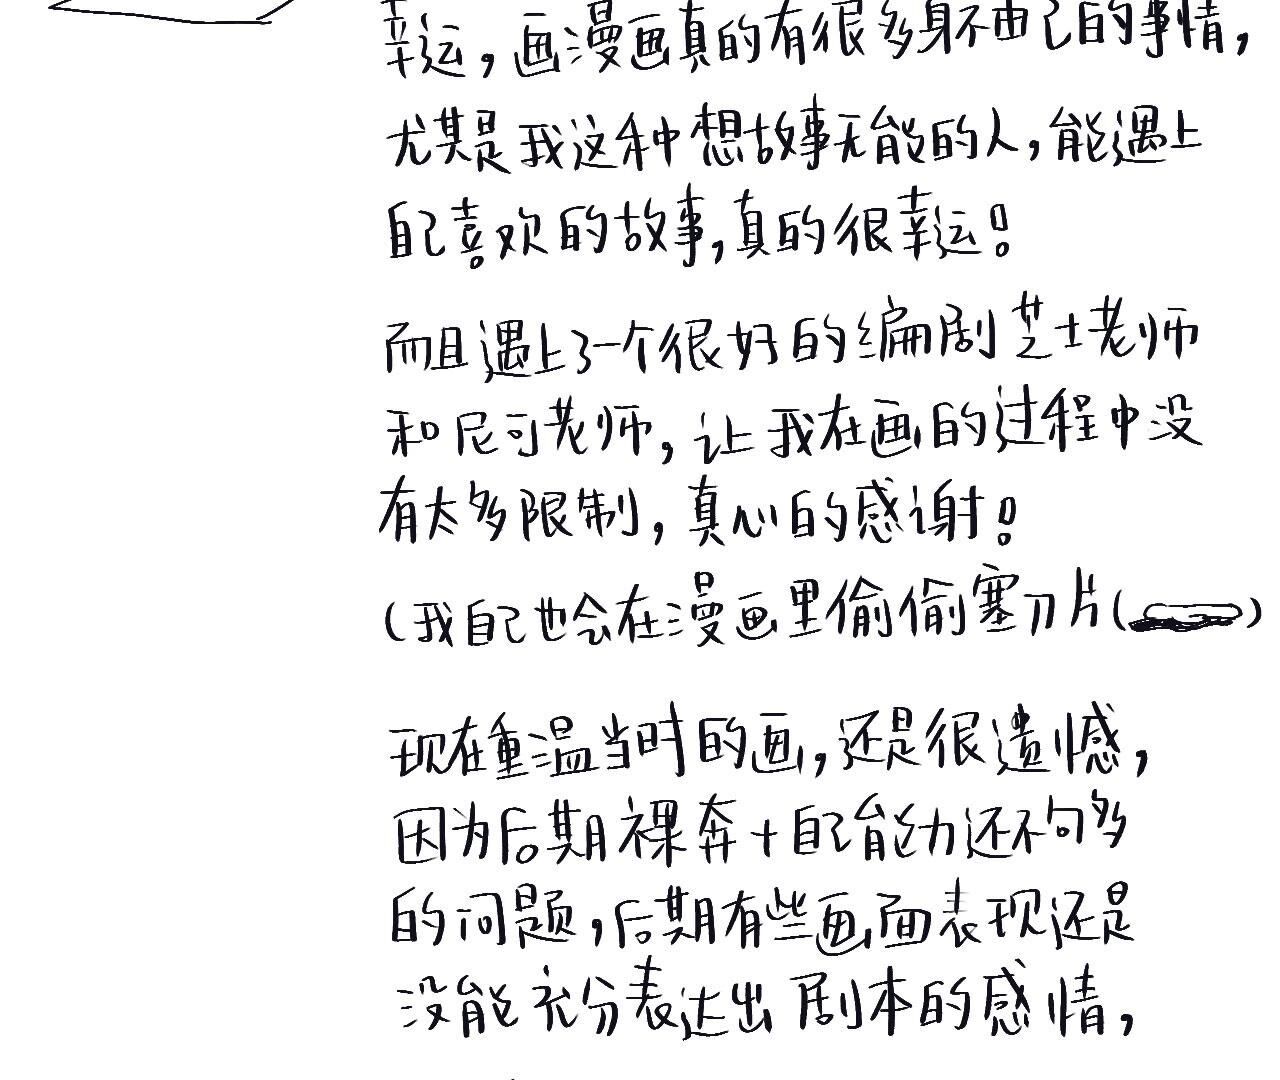 幸运，画漫画真的有很多身不由己的事情，
尤其是我这种想故事无能的人，能遇上
自己喜欢的故事，真的很幸运！
而且遇上了一个很好的编剧芝士老师
和尼可老师，让我在画的过程中没
有太多限制，真心的感谢！
（我自己也会在漫画里偷偷塞刀片（）
现在重温当时的画，还是很遗憾，
因为后期裸奔+自己能力还不够多
的问题，后期有些画面表现还是
没能充分表达出剧本的感情，